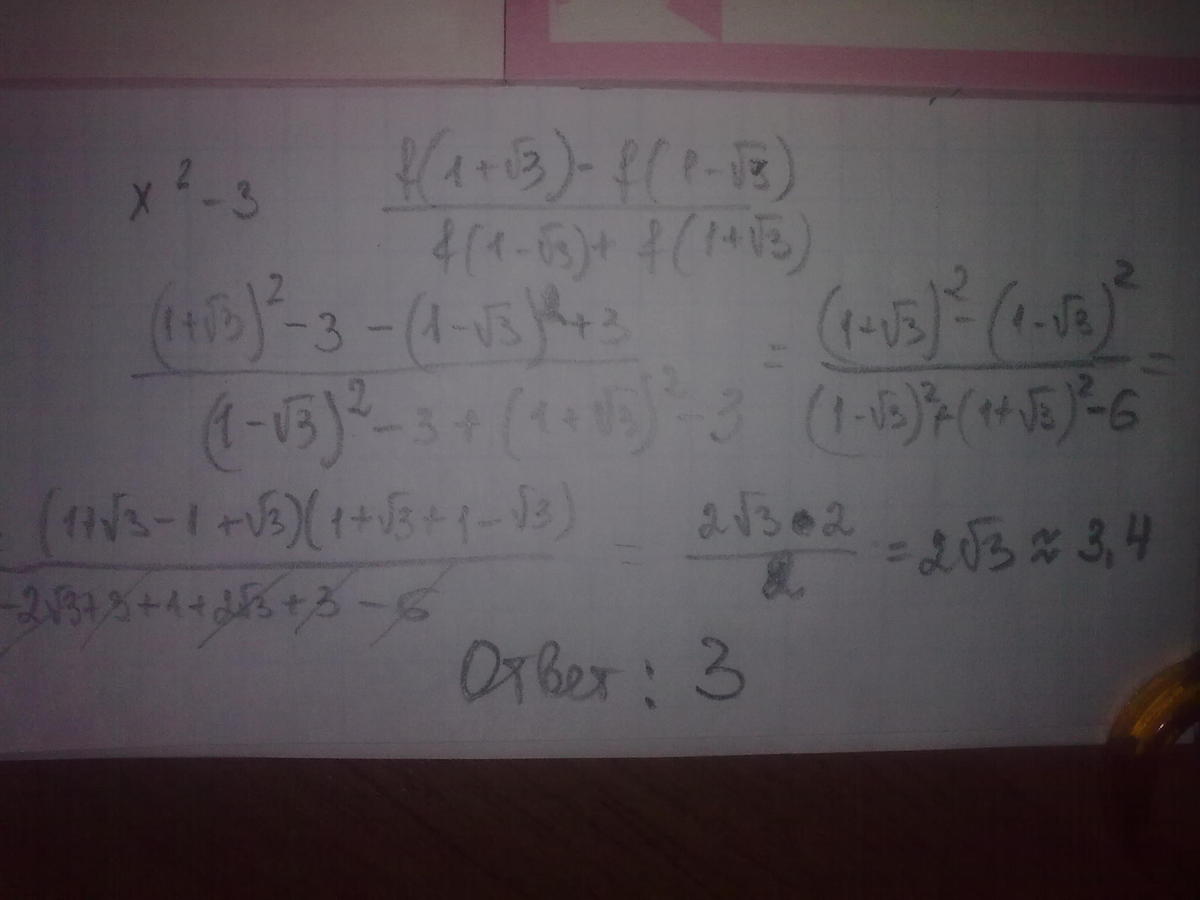 x² - 3    (f(1+√3) - f(1-√3)) / (f(1-√3) + f(1+√3))
((1+√3)² - 3 - (1-√3)² + 3) / ((1-√3)² - 3 + (1+√3)² - 3) = ((1+√3)² - (1-√3)²) / ((1-√3)² + (1+√3)² - 6) =
((1+√3-1+√3)(1+√3+1-√3)) / (-2√3+3+1+2√3+3-6) = (2√3•2) / 2 = 2√3 ≈ 3,4
Ответ: 3